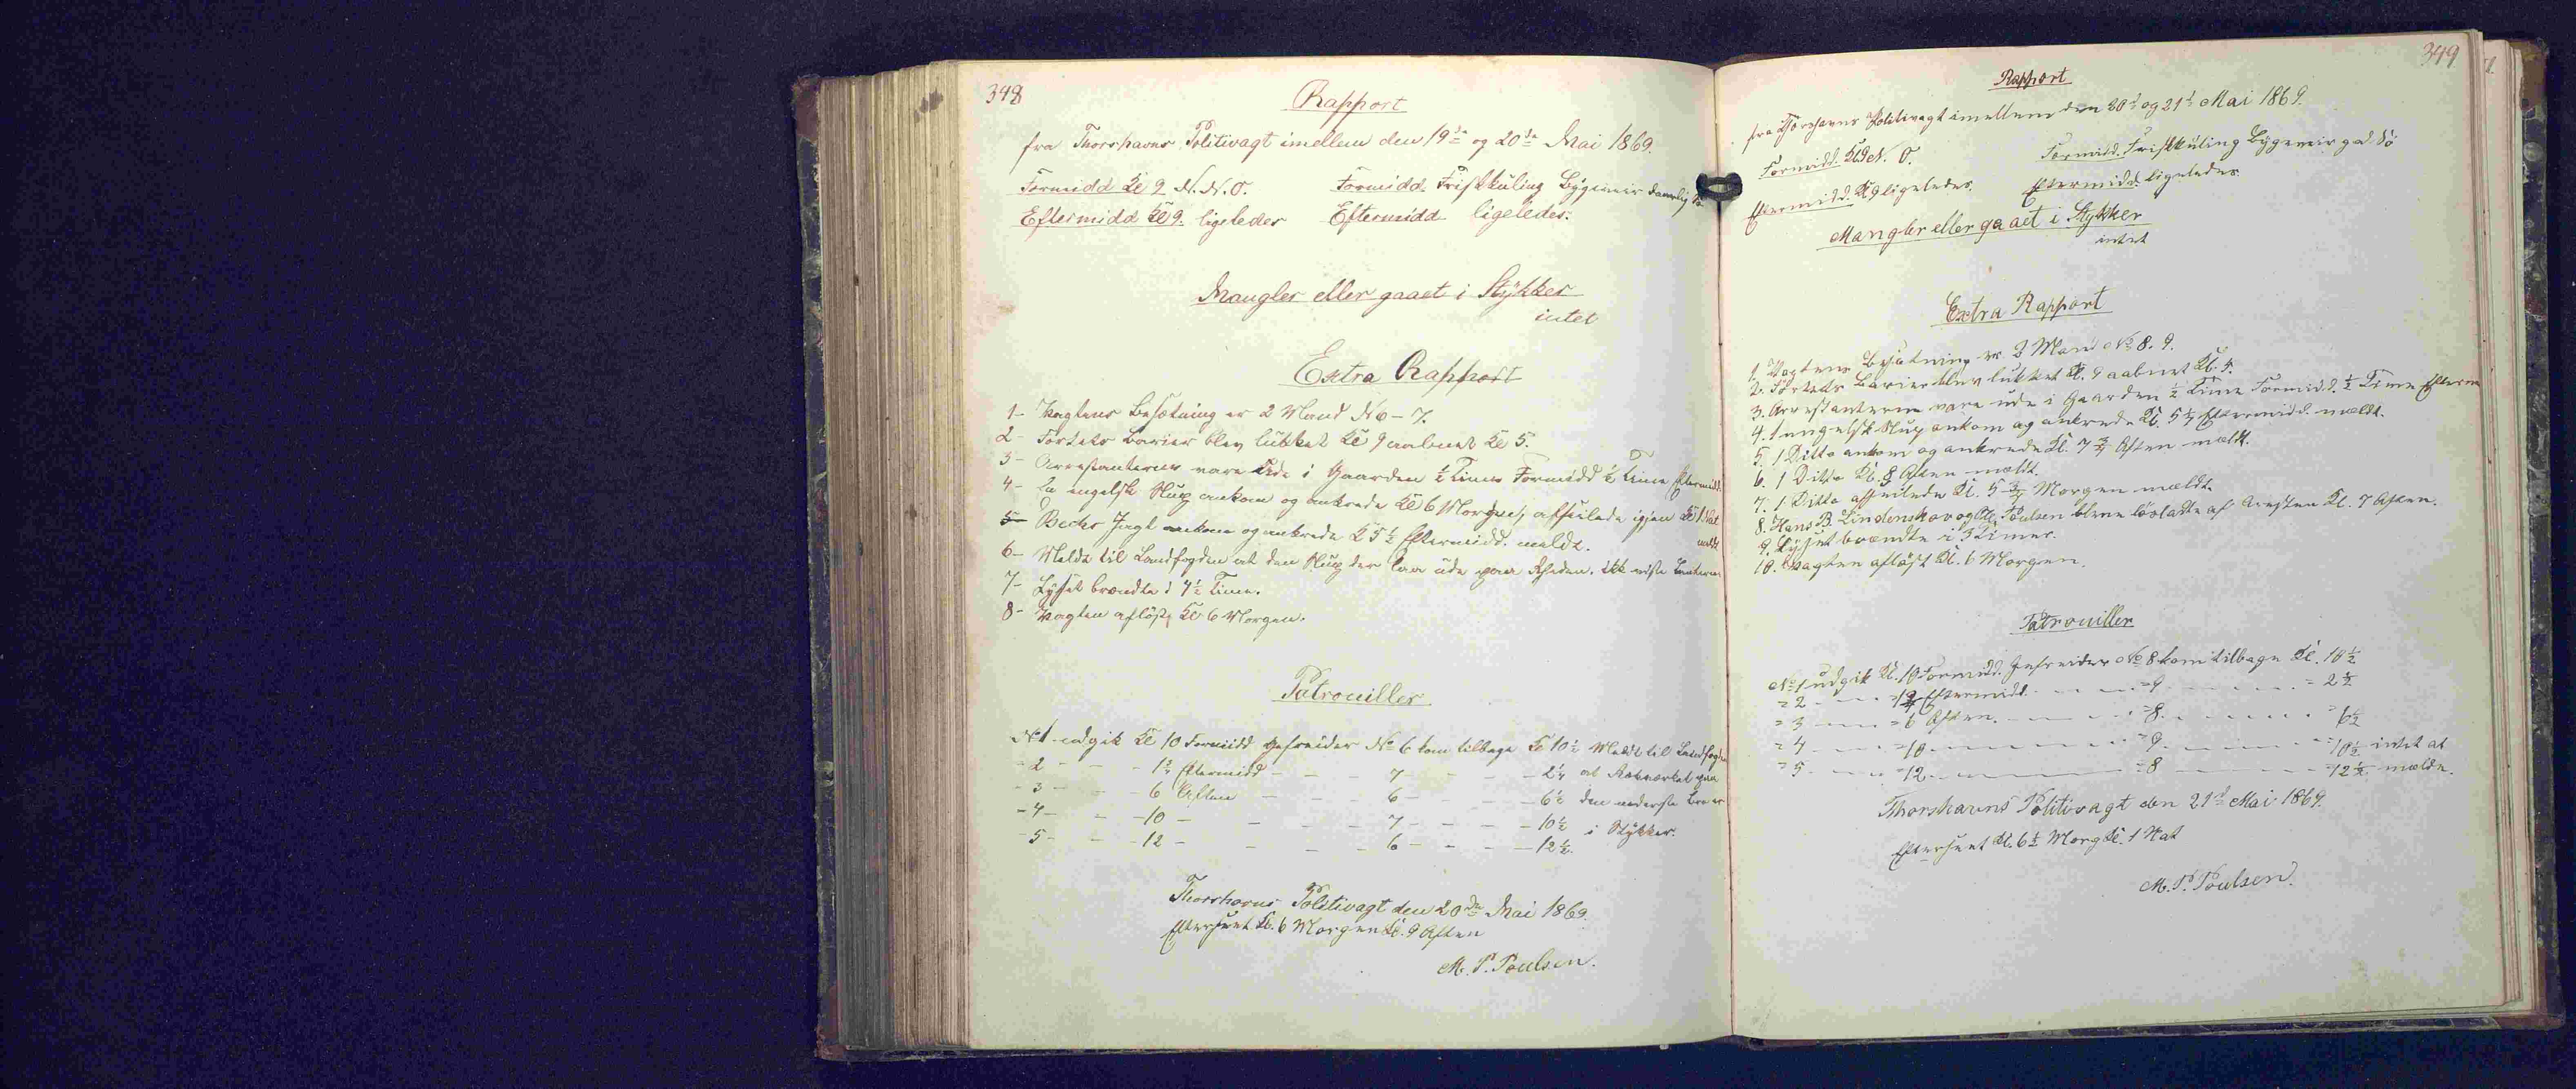 348
Rapport
fra Thorshavns Politivagt imellem den 19de og 20de Mai 1869.
Formidd Kl 9 N.N.O. Formidd. Friskkuling Bygeveir daarlig Sö
Eftermidd Kl 9. ligeledes Eftermidd ligeledes.
Mangler eller gaaet i Stykker
intet
Extra Rapport
1- Vagtens Besætning er 2 Mand N 6-7.
2- Fortets Barier blev lukket Kl 9 aabnet Kl 5.
3- Arrestanterne vare ude i Gaarden ½ Time Formidd ½ Time Eftermidd.
4- En engelsk Slup ankom og ankrede Kl 6 Morgen, afseilede igjen Kl 1 Nat
meldt
5- Becks Jagt ankom og ankrede Kl 5½ Eftermidd. meldt.
6- Meldt til Landfogden at den Slup der laa ude paa Rheden. ikk viste Lanterne
7- Lyset brændte i 4½ Time.
8- Vagten aflöst Kl 6 Morgen.
Patrouiller
N1 udgik Kl 10 Formidd Gefreider No 6 kom tilbage Kl 10½ Meldt til Landfogden
- 2 - - - 1¾ Eftermidd - - - 7 - - - 2¼ at Rækværket paa
- 3 - - - 6 Aften - - - 6 - - - 6½ den nederste Bro er
- 4 - - - 10 - - - - 7 - - - 10½ i Stykker.
- 5 - - - 12 - - - - 6 - - - 12½.
Thorshavns Politivagt den 20de Mai 1869.
Efterseet Kl. 6 Morgen Kl. 9 Aften
M. P. Poulsen.
349
Rapport
fra Thorshavns Politivagt imellem den 20d og 21d Mai 1869.
Formidd. Kl 9 N. O. Formidd. Friskkuling Bygeveir god Sö
Eftermidd. Kl 9 ligeledes. Eftermidd. ligeledes.
Mangler eller gaaet i Stykker
intet
Extra Rapport
1. Vagtens Besætning er 2 Mand No 8. 9.
2. Fortets Barier blev lukket Kl. 9 aabnet Kl. 5.
3. Arrestanterne vare ude i Gaarden ½ Time Formidd. ½ Time Efterm
4. 1 engelsk Slup ankom og ankrede Kl. 5½ Eftermidd. mældt.
5. 1 Ditto ankom og ankrede Kl. 7¾ Aften mældt.
6. 1 Ditto Kl. 8 Aften mældt.
7. 1 Ditto afseilede Kl. 5¾ Morgen mældt.
8. Hans B. Lindenskov og Poulsen bleve lösladte af Aresten Kl. 7 Aften.
9. Lyset brændte i 3 Timer.
10. Vagten aflöst Kl. 6 Morgen.
Patrouiller
No 1 udgik Kl. 10 Formidd. Gefreider No 8 kom tilbage Kl. 10½
= 2 - - - = Eftermidd. - - - = 9 - - - = 2½
= 3 - - - = 6 Aften. - - - = 8. - - - = 6½
= 4 - - - = 10 - - - = 9 - - - = 10½ intet at
= 5 - - - = 12 - - - = 8 - - - = 12½ mælde.
Thorshavns Politivagt den 21d Mai 1869.
Efterseet Kl. 6½ Morg Kl. 1 Nat
M. P. Poulsen.